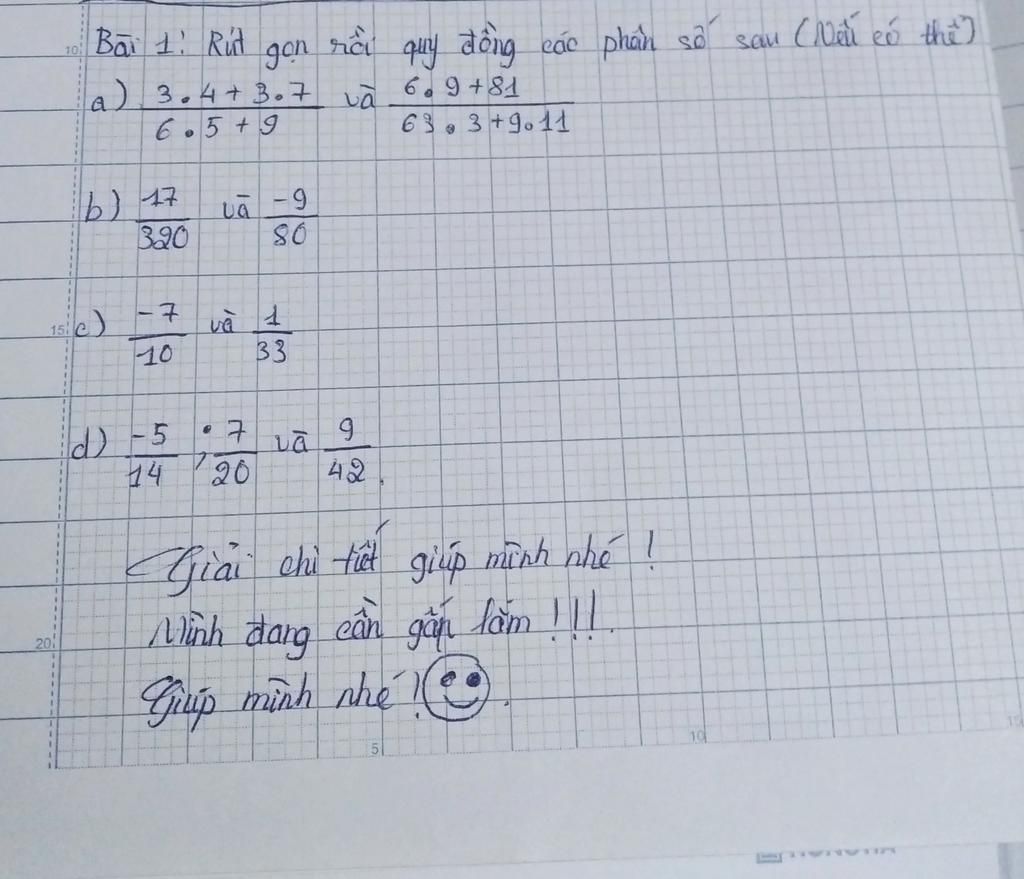 10
Bài 1: Rút gọn rồi quy đồng các phân số sau (Nếu có thể)
a) 3.4+3.7/6.5+9 và 6.9+81/63.3+9.11
b) 17/320 và -9/80
15 c) -7/10 và 1/33
d) -5/14 ; 7/20 và 9/42.
Giải chi tiết giúp mình nhé!
20 Mình đang cần gấp lắm!!!
Giúp mình nhé!
5 10 15